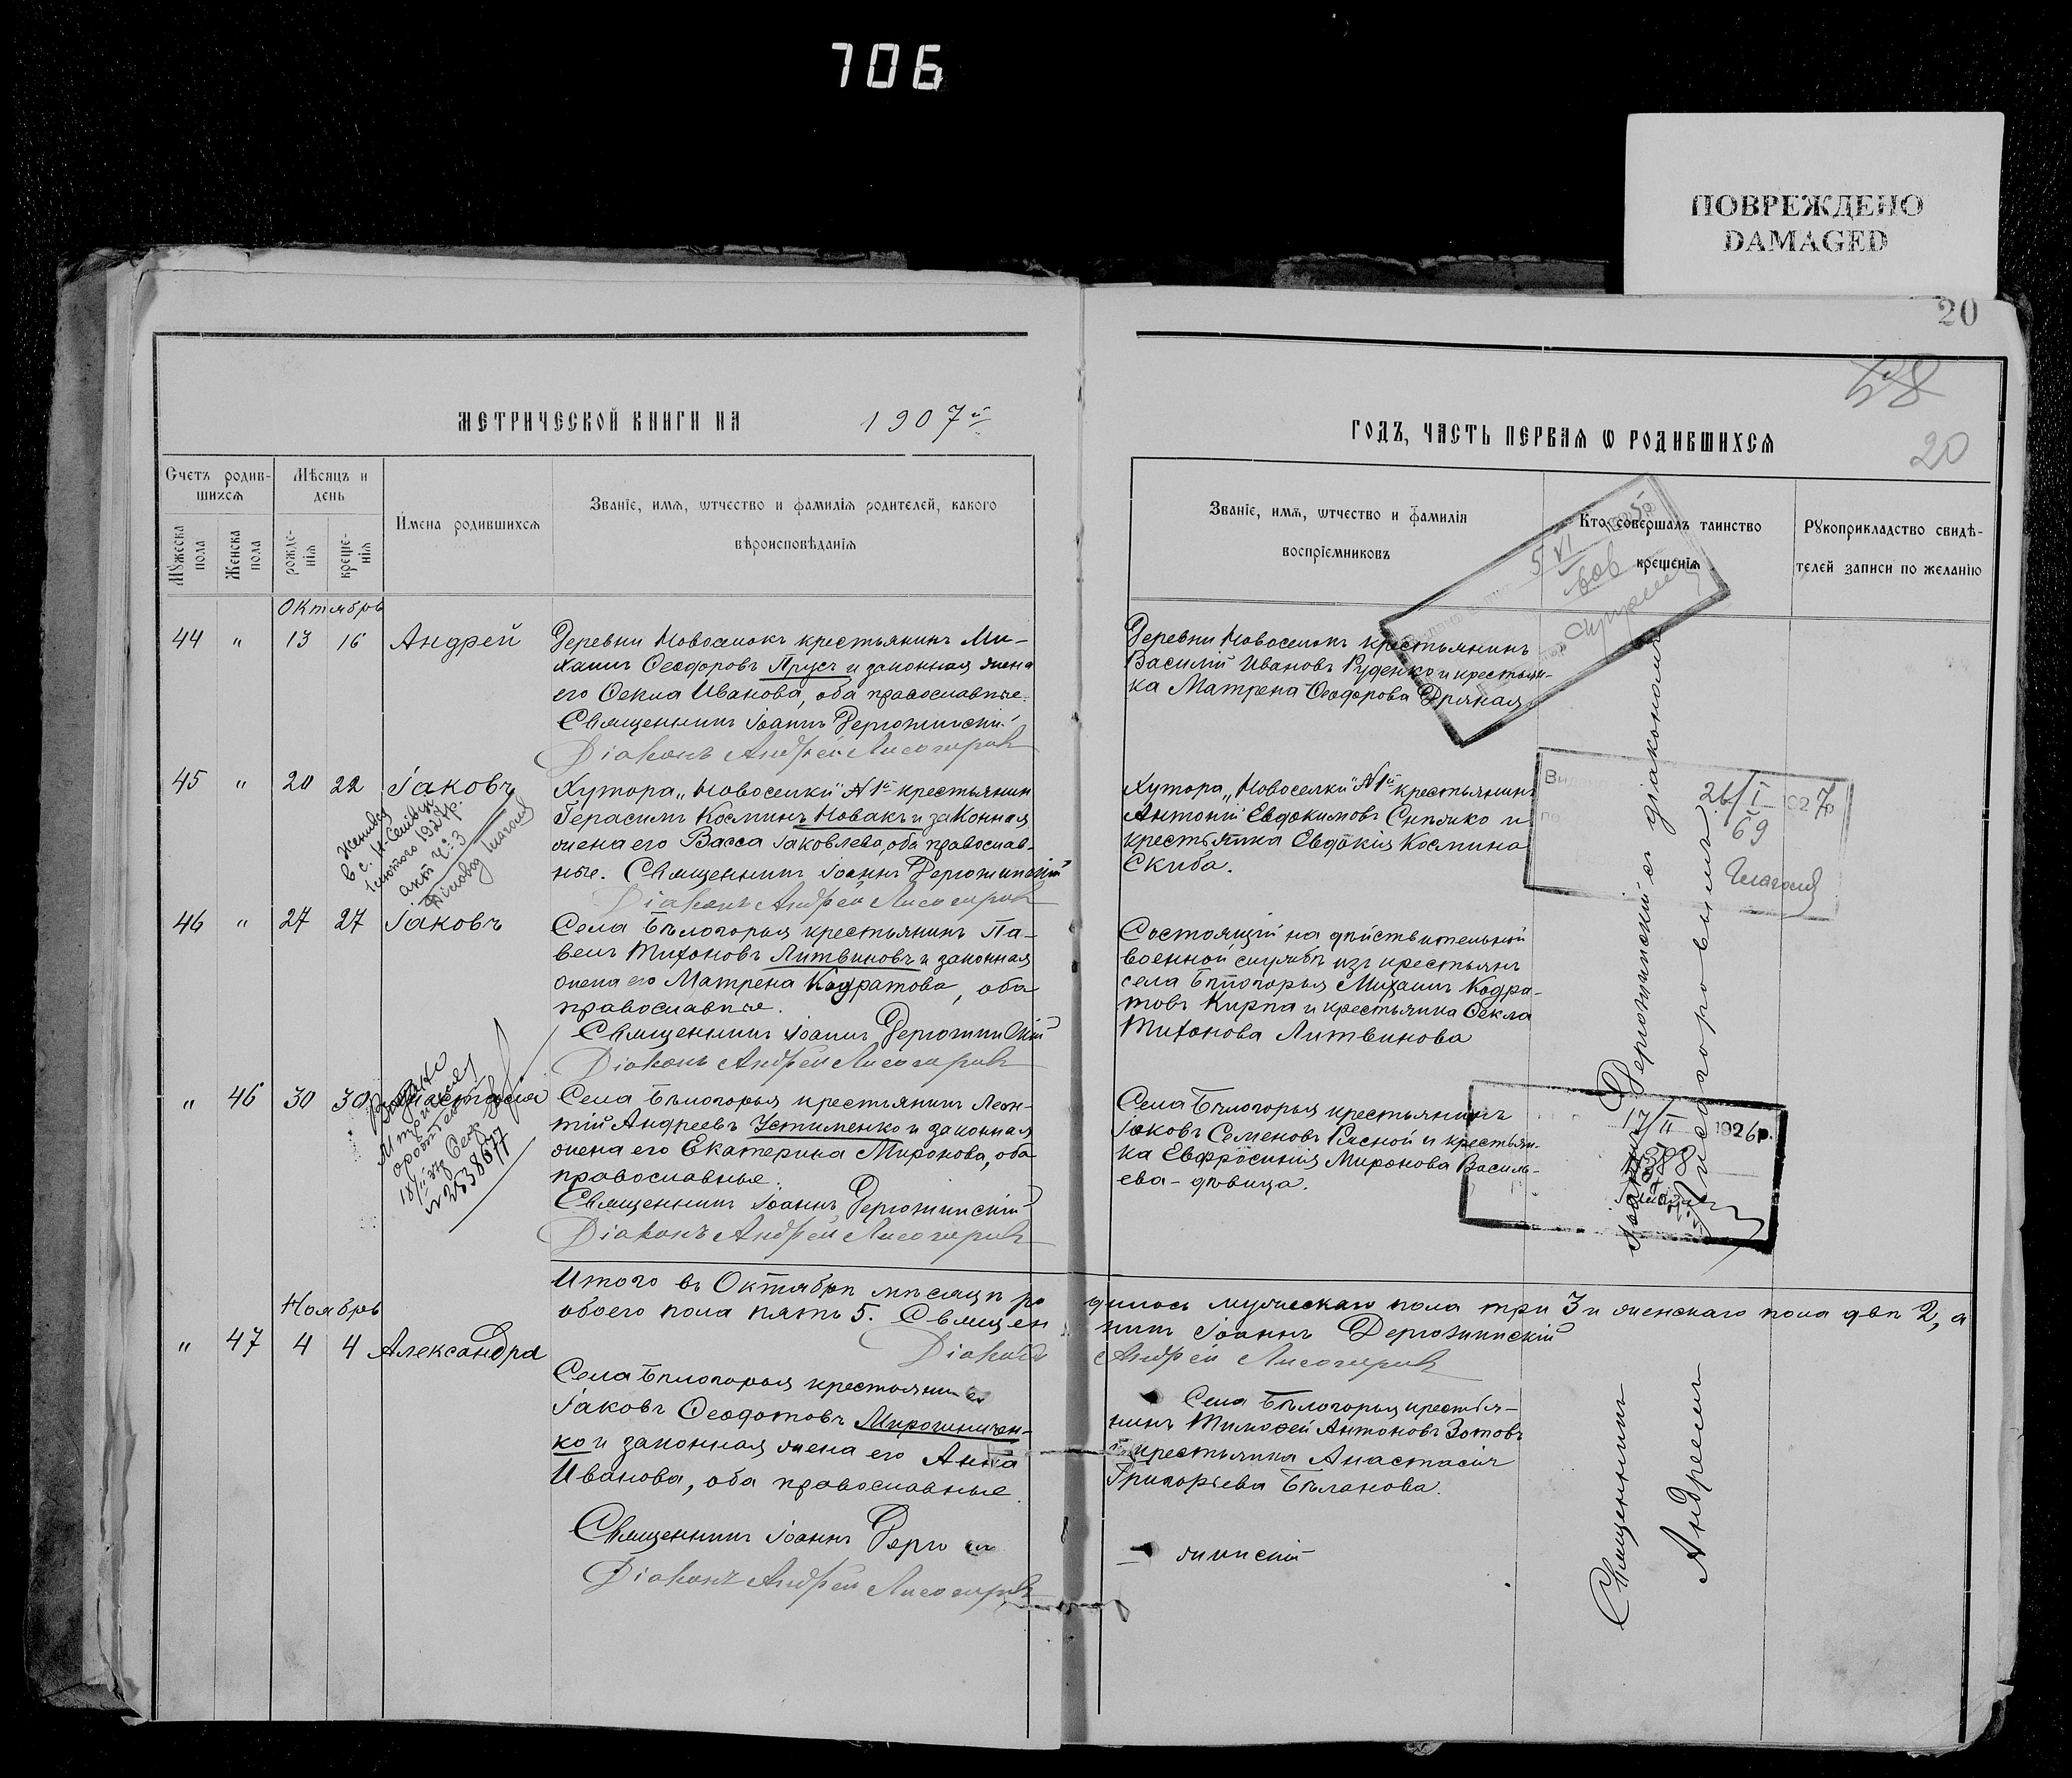 706
ПОВРЕЖДЕНО
DAMAGED
20
20
МЕТРИЧЕСКОЙ КНИГИ НА 1907й
ГОДЪ, ЧАСТЬ ПЕРВАЯ Ѡ РОДИВШИХСЯ
Счетъ родив-
шихся
Мѣсяцъ и
день
Мꙋжеска пола
Женска пола
рожде-
нія
креще-
нія
Имена родившихся
Званіе, имя, ѡтчество и фамилія родителей, какого
вѣроисповѣданія
Званіе, имя, ѡтчество и фамилія
воспріемниковъ
Кто совершалъ таинство
крещенія
Рꙋкоприкладство свидѣ-
телей записи по желанію
Октябрь
44 " 13 16 Андрей
Деревни Новоселокъ крестьянинъ Ми-
хаилъ Ѳеодоровъ Прусъ и законная жена
его Ѳекла Иванова, оба православные.
Священникъ Іоаннъ Дергожинскій
Діаконъ Андрей Лисогоровъ
Деревни Новоселокъ крестьянинъ
Василій Ивановъ Руденко и крестьян-
ка Матрена Ѳеодорова Дряная
5/VI
45 " 20 22 Іаковъ
Хутора „Новоселки" №1й крестьянин
Герасимъ Косминъ Новакъ и законная
жена его Васса Іаковлева, оба православ-
ные. Священникъ Іоаннъ Дергожинскій
Діаконъ Андрей Лисогоровъ
Хутора „Новоселки" №1й крестьянинъ
Антоній Евдокимовъ Сипляко и
крестьянка Евдокія Космина
Скиба.
26/I 1927р
69
46 " 27 27 Іаковъ
Села Бѣлогорья крестьянинъ Па-
велъ Тихоновъ Литвиновъ и законная
жена его Матрена Кодратова, оба
православные.
Священникъ Іоаннъ Дергожинскій
Діаконъ Андрей Лисогоровъ
Состоящій на дѣйствительной
военной службѣ изъ крестьянъ
села Бѣлогорья Михаилъ Кодра-
товъ Кирпа и крестьянка Ѳекла
Тихонова Литвинова
" 46 30 30 Анастасія
Села Бѣлогорья крестьянинъ Леон-
тій Андреевъ Устименко и законная
жена его Екатерина Миронова, оба
православные.
Священникъ Іоаннъ Дергожинскій
Діаконъ Андрей Лисогоровъ
Села Бѣлогорья крестьянинъ
Іаковъ Семеновъ Рясной и крестьян-
ка Евфросинія Миронова Василь-
ева - дѣвица.
17/II 1926р.
388
Итого въ Октябрѣ мѣсяцѣ ро дилось мужескаго пола три 3 и женскаго пола двѣ 2, а
обоего пола пять 5. Священ никъ Іоаннъ Дергожинскій
Діаконъ Андрей Лисогоровъ
Ноябрь
" 47 4 4 Александра
Села Бѣлогорья крестьянинъ
Іаковъ Ѳеодотовъ Мирошничен-
ко и законная жена его Анна
Иванова, оба православные.
Священникъ Іоаннъ Дерго жинскій
Діаконъ Андрей Лисогоровъ
Села Бѣлогорья крестья-
нинъ Тимоѳей Антоновъ Зотовъ
и крестьянка Анастасія
Григорьева Бѣланова.
Священникъ Іоаннъ Дергожинскій с діакономъ
Андреемъ Лисогоровымъ